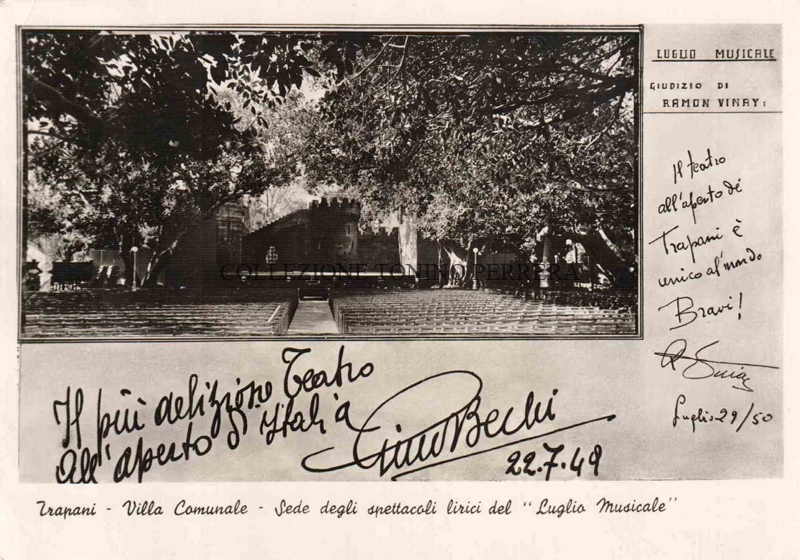 LUGLIO MUSICALE
GIUDIZIO DI
RAMON VINAY:
Il teatro
all'aperto de
Trapani è
unico al mondo
Bravi!
Luglio 29/50
COLLEZIONE TONINO PERRERA
Il più delizioso Teatro
All'aperto d'Italia
Gino Bechi
22.7.49
Trapani - Villa Comunale - Sede degli spettacoli lirici del "Luglio Musicale"